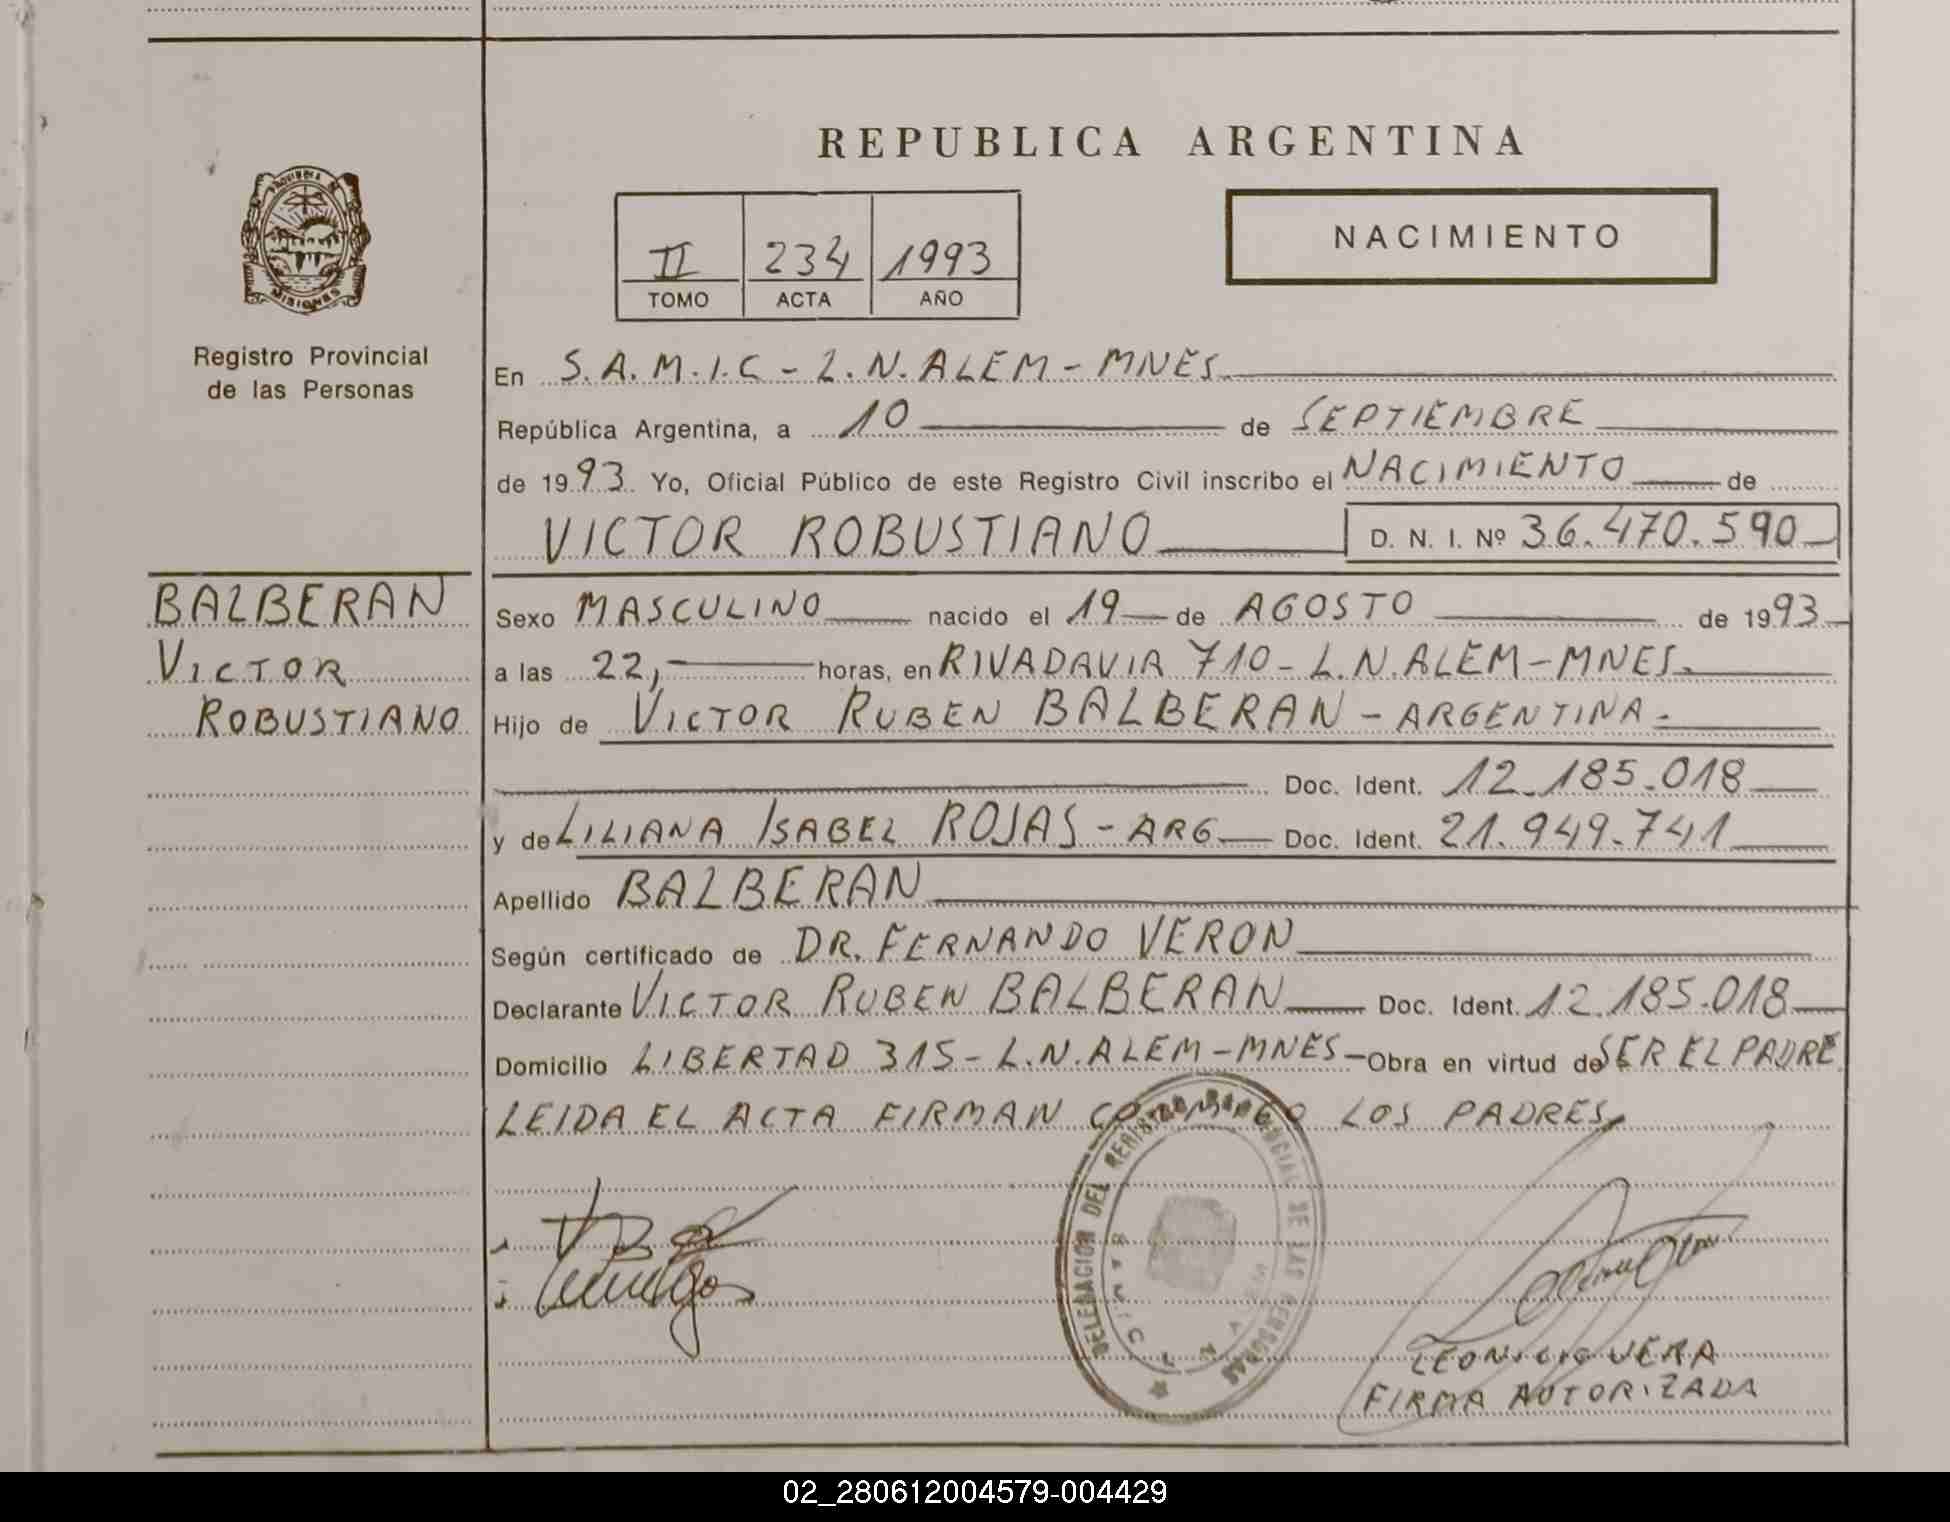 REPUBLICA ARGENTINA
PROVINCIA DE
MISIONES
Registro Provincial
de las Personas
II 234 1993
TOMO ACTA AÑO
NACIMIENTO
En S.A.M.I.C - L.N.ALEM - MNES.
República Argentina, a 10 de SEPTIEMBRE
de 1993. Yo, Oficial Público de este Registro Civil inscribo el NACIMIENTO de
VICTOR ROBUSTIANO D. N. I. Nº 36.470.590
BALBERAN
VICTOR
ROBUSTIANO
Sexo MASCULINO nacido el 19 de AGOSTO de 1993
a las 22, horas, en RIVADAVIA 710 - L.N.ALEM - MNES.
Hijo de VICTOR RUBEN BALBERAN - ARGENTINA.
Doc. Ident. 12.185.018
y de LILIANA ISABEL ROJAS - ARG Doc. Ident. 21.949.741
Apellido BALBERAN
Según certificado de DR. FERNANDO VERON
Declarante VICTOR RUBEN BALBERAN Doc. Ident. 12.185.018
Domicilio LIBERTAD 315 - L.N.ALEM - MNES - Obra en virtud de SER EL PADRE
LEIDA EL ACTA FIRMAN CONMIGO LOS PADRES
DELEGACION DEL REGISTRO PROVINCIAL DE LAS PERSONAS
VERA
FIRMA AUTORIZADA
02_280612004579-004429